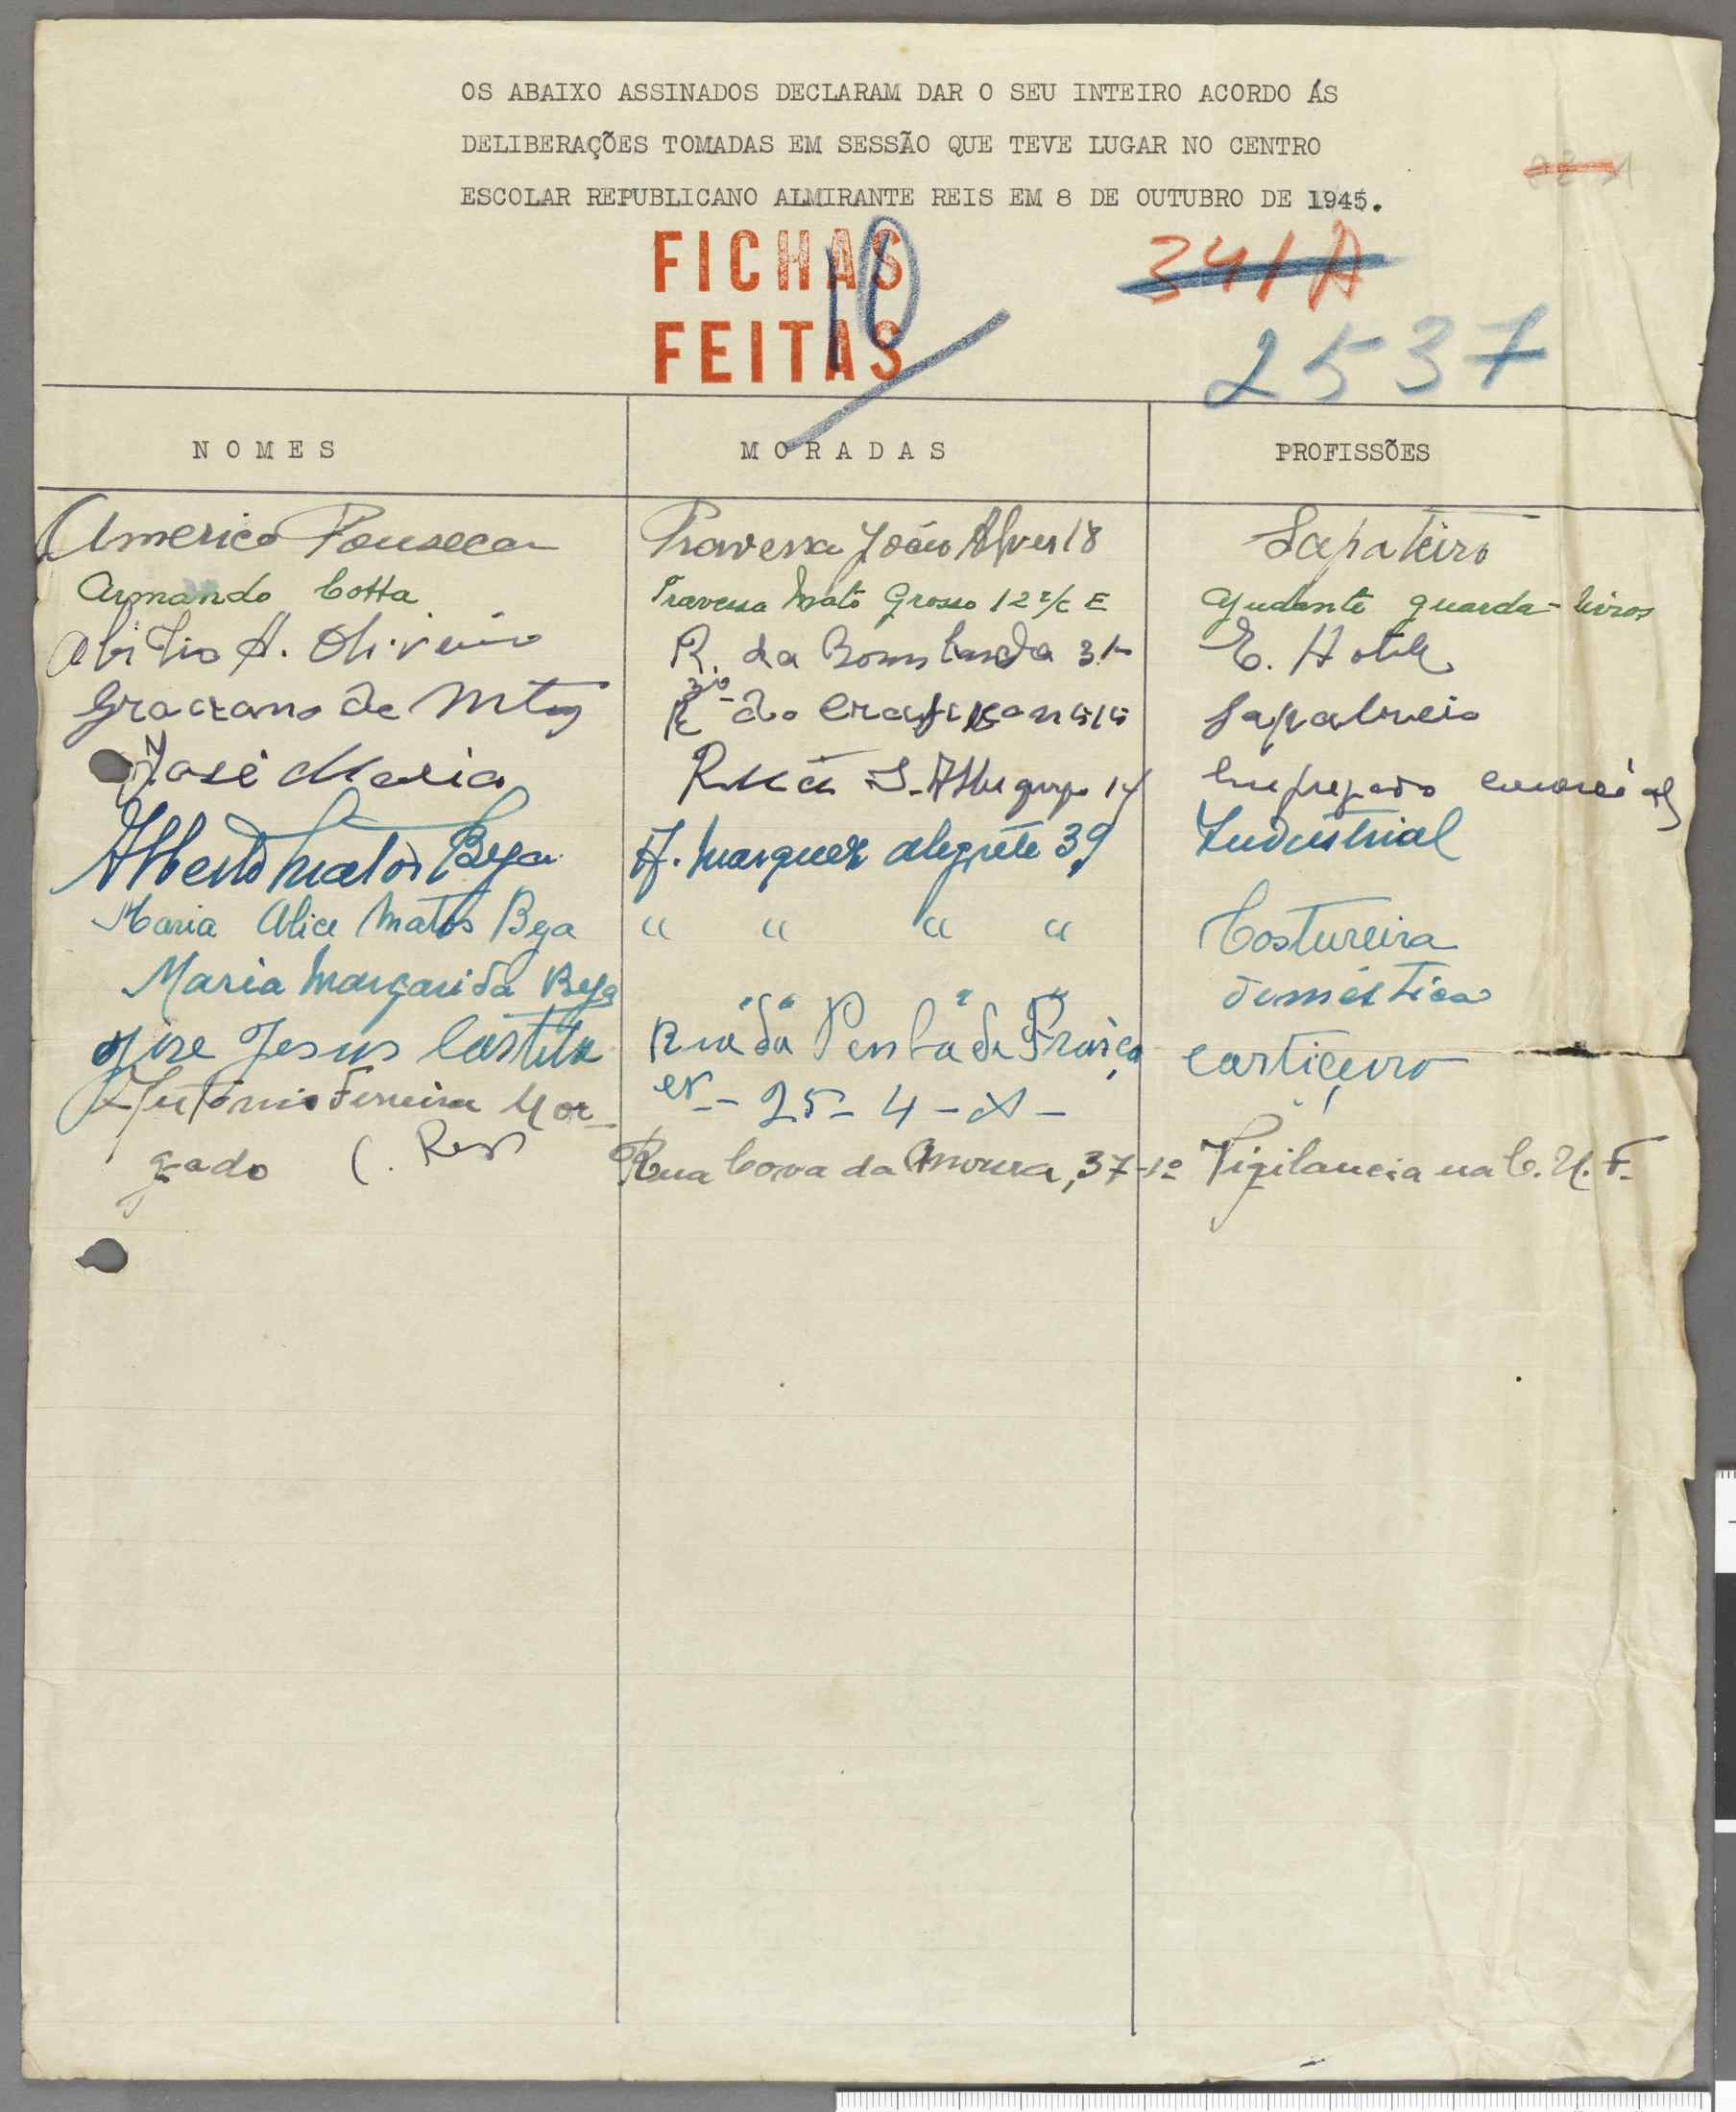 OS ABAIXO ASSINADOS DECLARAM DAR O SEU INTEIRO ACORDO ÁS
DELIBERAÇÕES TOMADAS EM SESSÃO QUE TEVE LUGAR NO CENTRO
ESCOLAR REPUBLICANO ALMIRANTE REIS EM 8 DE OUTUBRO DE 1945.
FICHAS
FEITAS
10
341A
2537
NOMES MORADAS PROFISSÕES
Americo Fonseca Travessa João Alves 18 Sapateiro
Armando Cotta Travessa Mato Grosso 12 r/c E Ajudante guarda-livros
Abilio A. Oliveira R. da Bombarda E. Hotel
Graciano de R do Sapatreio
José Maria Rua Empregado
Alberto Matos Bega marquez alegrete 39 Industrial
Maria Alice Matos Bega " " " " Costureira
Maria Margarida Bega " " " " doméstica
Jose Jesus Rua da Penha de França corticeiro
25-4-
António Ferreira Mor-
gado Rua Cova da Moura, 37-1º Vigilancia na C. U. F.